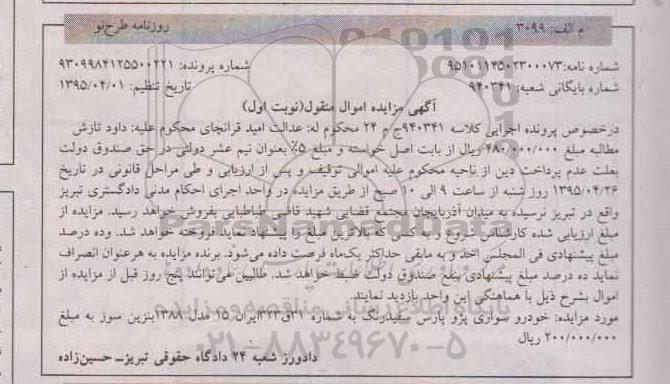 م الف: ۳۰۹۹
روزنامه طرح‌نو
شماره نامه: ۹۵۱۰۱۱۴۵۰۲۳۰۰۰۷۳
شماره پرونده: ۹۳۰۹۹۸۴۱۲۵۵۰۰۲۲۱
شماره بایگانی شعبه: ۹۴۰۳۴۱
تاریخ تنظیم: ۱۳۹۵/۰۴/۰۱
آگهی مزایده اموال منقول(نوبت اول)
درخصوص پرونده اجرایی کلاسه ۹۴۰۳۴۱ج م ۲۴ محکوم له: عدالت امید قرانچای محکوم علیه: داود تازش
مطالبه مبلغ ۴۸۰/۰۰۰/۰۰۰ ریال از بابت اصل خواسته و مبلغ ۵٪ بعنوان نیم عشر دولتی در حق صندوق دولت
بعلت عدم پرداخت دین از ناحیه محکوم علیه اموالی توقیف و پس از ارزیابی و طی مراحل قانونی در تاریخ
۱۳۹۵/۰۴/۲۶ روز شنبه از ساعت ۹ الی ۱۰ صبح از طریق مزایده در واحد اجرای احکام مدنی دادگستری تبریز
واقع در تبریز نرسیده به میدان آذربایجان مجتمع قضایی شهید قاضی طباطبایی بفروش خواهد رسید. مزایده از
مبلغ ارزیابی شده کارشناس شروع و به کسی که بالاترین مبلغ را پیشنهاد نماید فروخته خواهد شد. وده درصد
مبلغ پیشنهادی فی المجلس اخذ و به مابقی حداکثر یک‌ماه فرصت داده می‌شود. برنده مزایده به هرعنوان انصراف
نماید ده درصد مبلغ پیشنهادی بنفع صندوق دولت ضبط خواهد شد. طالبین می‌توانند پنج روز قبل از مزایده از
اموال بشرح ذیل با هماهنگی این واحد بازدید نمایند.
مورد مزایده: خودرو سواری پژو پارس سفیدرنگ به شماره ۳۱ق۳۲۳ایران ۱۵ مدل ۱۳۸۸بنزین سوز به مبلغ
۲۰۰/۰۰۰/۰۰۰ ریال
دادورز شعبه ۲۴ دادگاه حقوقی تبریز_ حسین‌زاده
۰۲۱-۸۸۳۴۹۶۷۰-۵